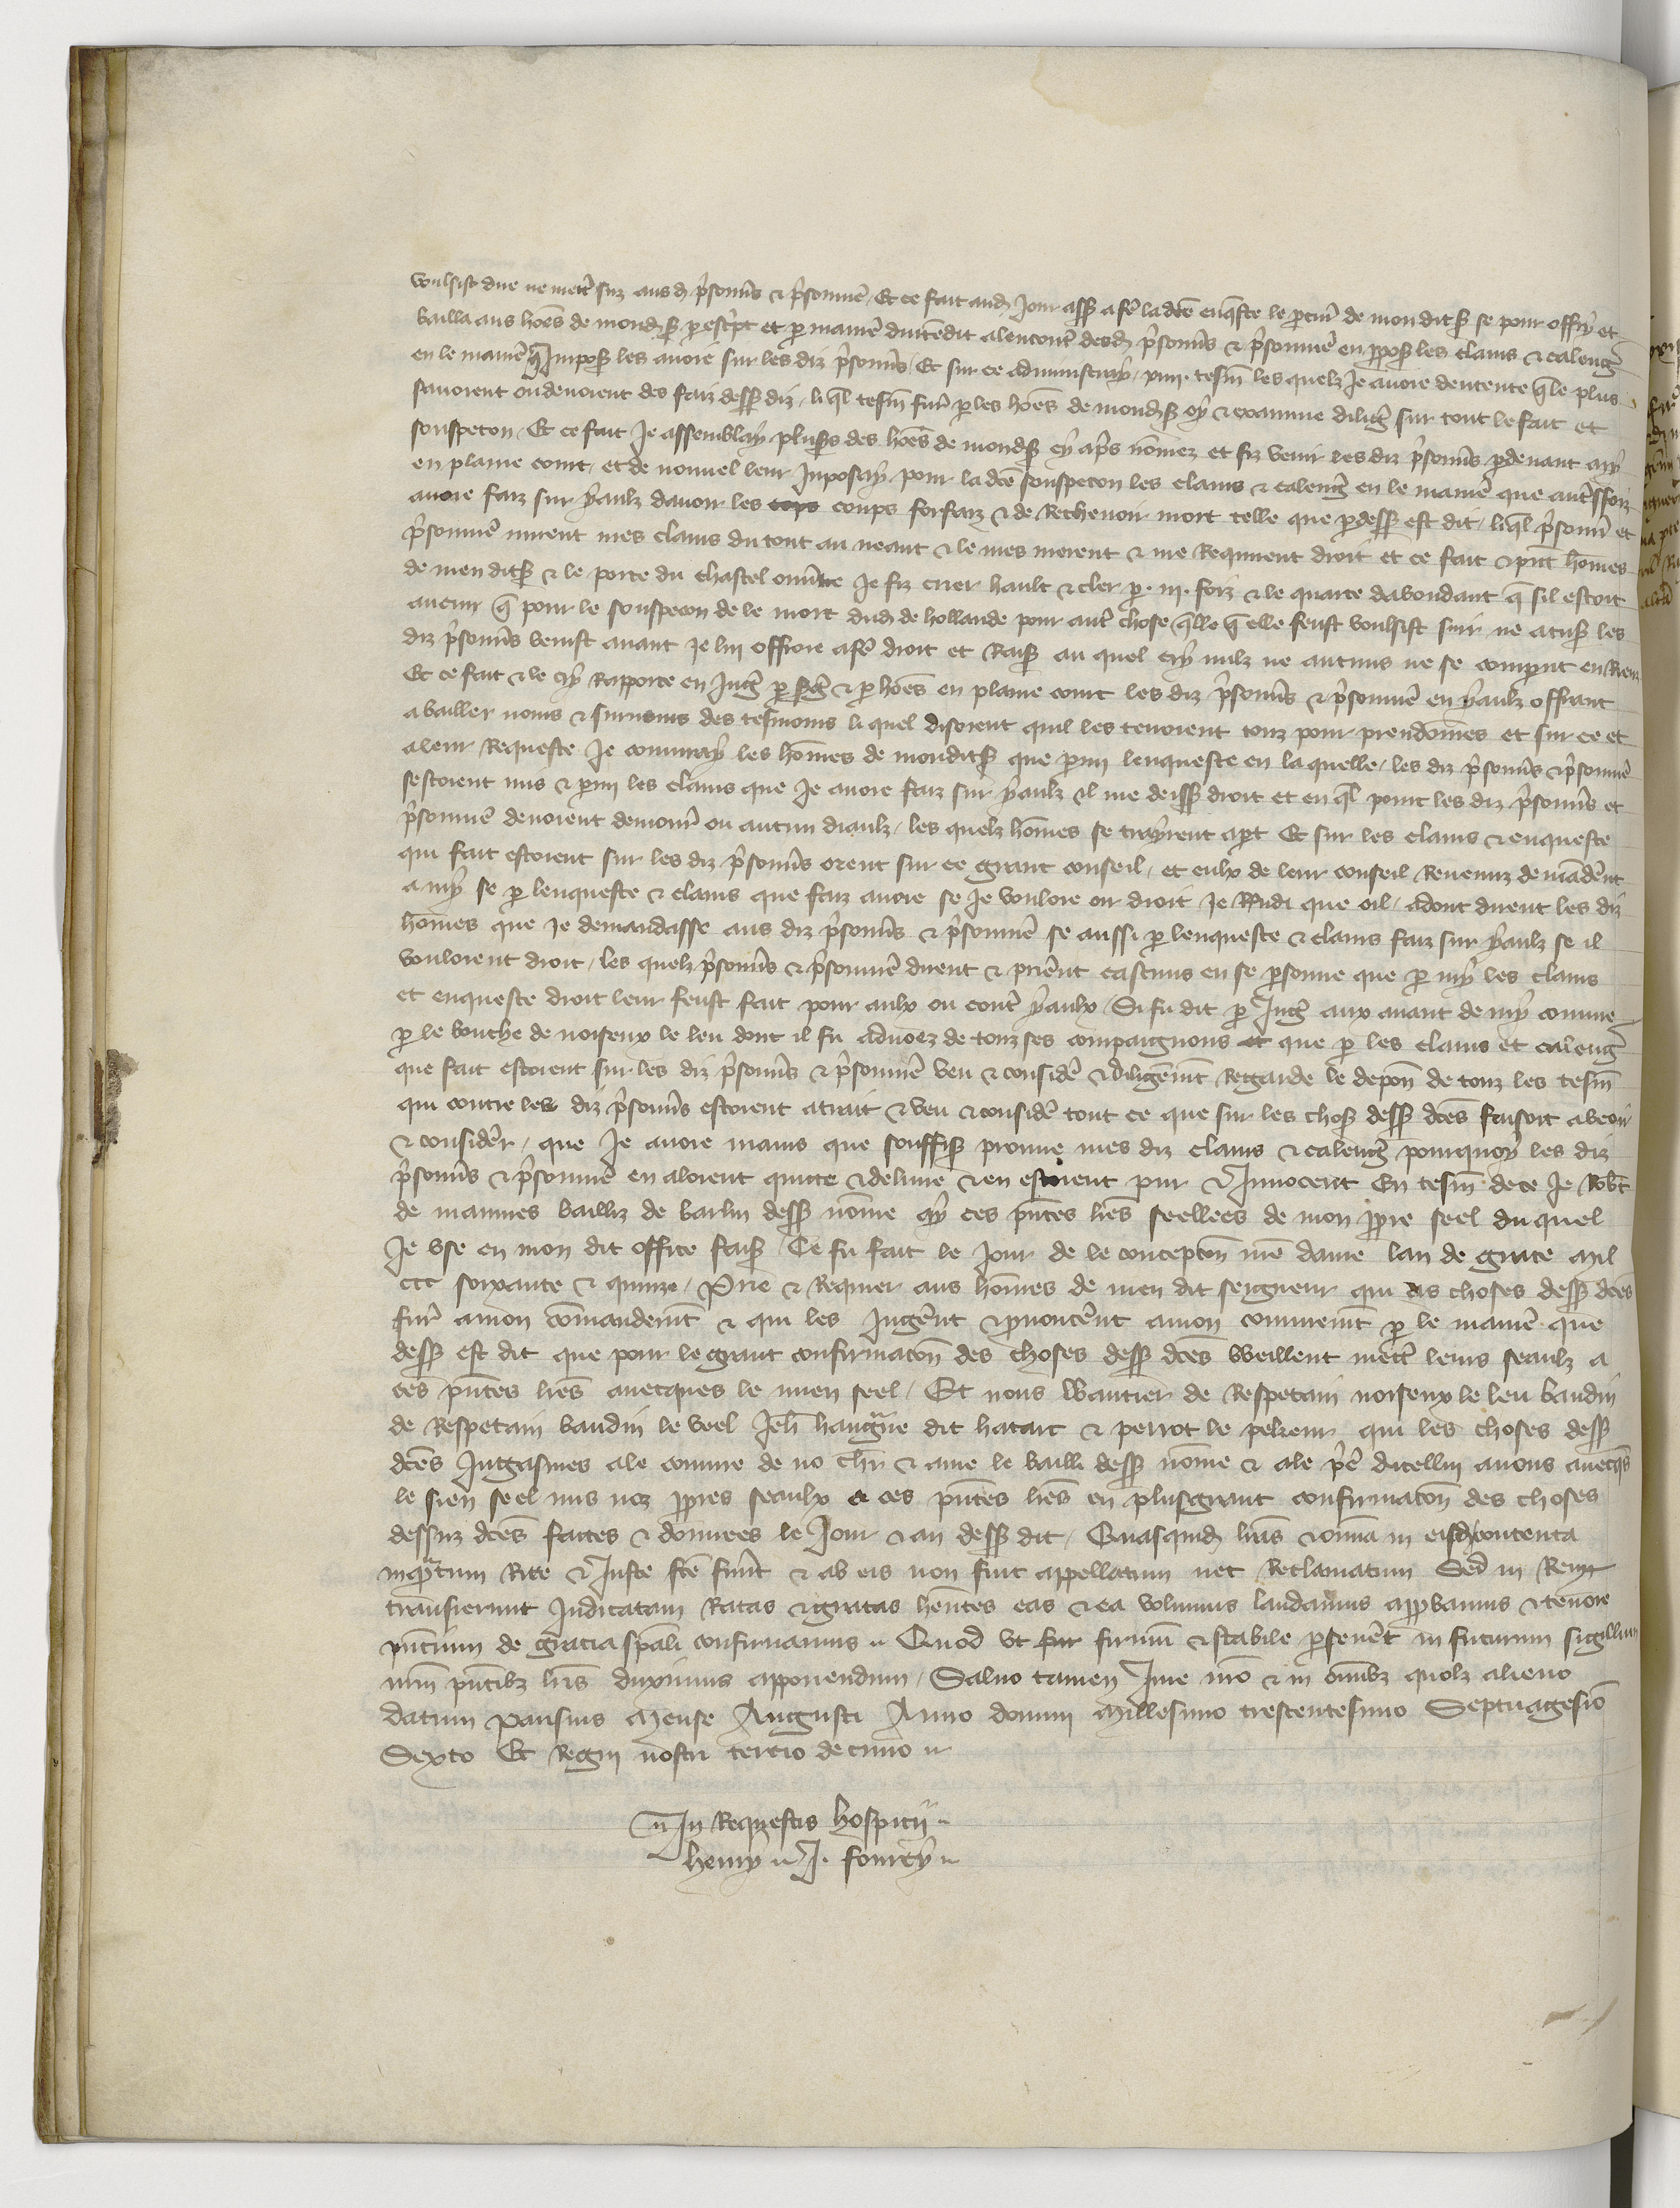 voulsist dire ne mettr sus aus d prisonns & prisonnie Et ce fait aud Jour assis a fe la dce enqste le pcur de mon dit s se pour offry et
bailla aus hoes de mond s p escpt et p manie dintendit alencont desd prisonns & prisonnie en ppos les clains & caleng
en le manie q Imposs les avoie sur les diz prisonns Et sur ce administray xiiii tesm les quelz Je avoie dentente q le plus
savoient ou devoient des faiz dess diz li ql tesm furt p les hoes de mond s oy & examine dilig sur tout le fait et
souspecon Et ce fait Je assemblay plusrs des hoes de mond s cy aps nomez et fiz venir les diz prisonns pdevant my
en plaine court et de nouvel leur Imposay pour la dce souspecon les clains & caleng en le manie que autssfoiz
avoie faiz sur yaulz davoir les cops coups forfaiz & de Rechevoir mort telle que pdess est dit liql prisonn et
prisonnie mirent mes clains du tout au neant & le mes merent & me Requirent droit et ce fait & pnt homes
de mon dit s & le porte du chastel ouvte Je fiz crier hault & cler p iii foiz & le quarte dabondant q sil estoit
aucun q pour le souspecon de le mort dud de hollande pour autr chose qlle q elle feust voulsist suir ne acus les
diz prisonns venist avant Je lui offroie a fe droit et Rais au quel cry nulz ne aucuns ne se comput en Riens
Et ce fait & le cry Rapporte en Jugt p sgt & p hoes en plaine court les diz prisonns & prisonnie en yaulz offrant
a bailler noms & surnoms des tesmoins li quel disoient quil les tenoient touz pour preudomes et sur ce et
a leur Requeste Je conjuray les homes de mondit s que pmi lenqueste en la quelle les diz prisonns & prisonnie
sestoient mis & pmi les clains que Je avoie faiz sur yaulz il me deiss droit et en ql point les diz prisonns et
prisonnie devoient demourr ou aucun diaulz les quelz homes se trayrent apt Et sur les clains & enqueste
qui fait estoient sur les diz prisonns orent sur ce grant conseil et eulx de leur conseil Revenuz demadent
a my se p lenqueste & clains que faiz avoie se Je vouloie oir droit Je Rndi que oil adont dirent les diz
homes que Je demandasse aus diz prisonns & prisonnie se aussi p lenqueste & clains faiz sur yaulz se il
vouloient droit les quelz prisonns & prisonnie dirent & prient cascuns en se psonne que p my les clains
et enqueste droit leur feust fait pour aulx ou contr yaulx Si fu dit p Jugt aux avant de my comme
p le bouche de noiseux le leu dont il fu advoez de touz ses compaignons et que p les clains et caleng
que fait estoient sur les diz prisonns & prisonnie veu & conside & diligemt Regarde le depon de touz les tesm
qui contre les diz prisonns estoient atrait & veu & conside tout ce que sur les chos dess dces faisoit a veoir
& consider que Je avoie mains que souffis prouve mes diz clains & caleng pourquoy les diz
prisonns & prisonnie en aloient quitte & delivre & en estoient pur & Innocent En tesm de ce Je Robt
de mannes bailliz de barlin dess nome ay ces pntes lres seellees de mon ppre seel du quel
Je use en mon dit office fais Ce fu fait le Jour de le concepton nre dame lan de grace mil
ccc soixante & quinze Prie & Requier aus homes de men dit seigneur qui as choses dess dces
furt a mon comandemt & qui les Jugent & pnoncent a mon conjuremt p le manie que
dess est dit que pour le grant confirmacon des choses dess dces weillent mettr leurs seaulz a
ces pntes lres avecques le mien seel Et nous Wautier de Respetain noiseux le leu baudin
de Respetain baudin le veel Jeh haugrue dit hatart & perrot le pelxeur qui les choses dess
dces Jugasmes a le conjure de no chr & ame le bailli dess nome & a le pe dicellui avons avecqs
le sien seel mis noz ppres seaulx a ces pntes lres en plusgrant confirmacon des choses
dessuz dces faites & donnees le Jour & an dess dit Quasquid lras & omia in eisd contenta
inqntum Rite & Juste fce funt & ab eis non fuit appellatum nec Reclamatum Sed in Rem
transierunt Judicatam Ratas & gratas hentes eas & ea volumus laudamus appbamus & tenore
pntium de gracia spali confirmamus Quod ut fir firmu & stabile psevet in futurum sigillum
nrm pntibz lris duximus apponendum Salvo tamen Jure nro & in omibz quolz alieno
datum parisius mense Augusti Anno domini Millesimo trescentesimo Septuagesio
Sexto Et Regni nostri tercio decimo
In Requestis hospicii
henry J. fourcy